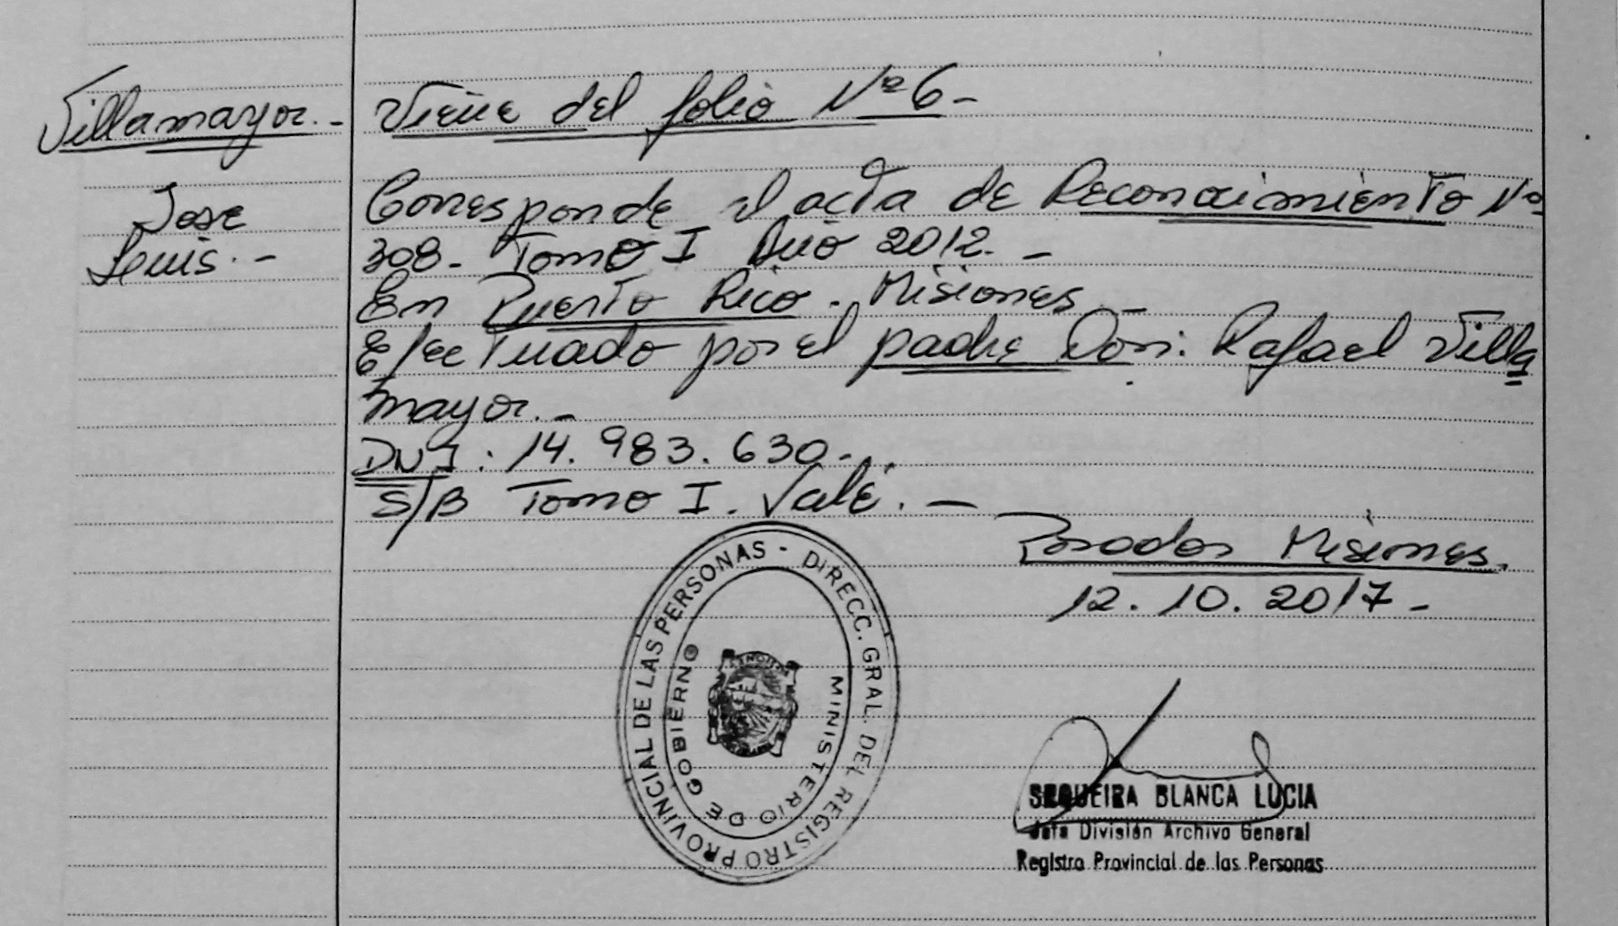 Villamayor.-
Jose
Luis.-
Viene del folio Nº 6-
Corresponde al acta de Reconocimiento Nº
308- Tomo I Año 2012.-
En Puerto Rico. Misiones
Efectuado por el padre Don: Rafael Villa
mayor.-
DNI: 14.983.630.-
S/B Tomo I. Vale.-
Posadas Misiones.
12.10.2017-
DIRECC. GRAL. DEL REGISTRO PROVINCIAL DE LAS PERSONAS -
MINISTERIO DE GOBIERNO
SEQUEIRA BLANCA LUCIA
Jefa División Archivo General
Registro Provincial de las Personas